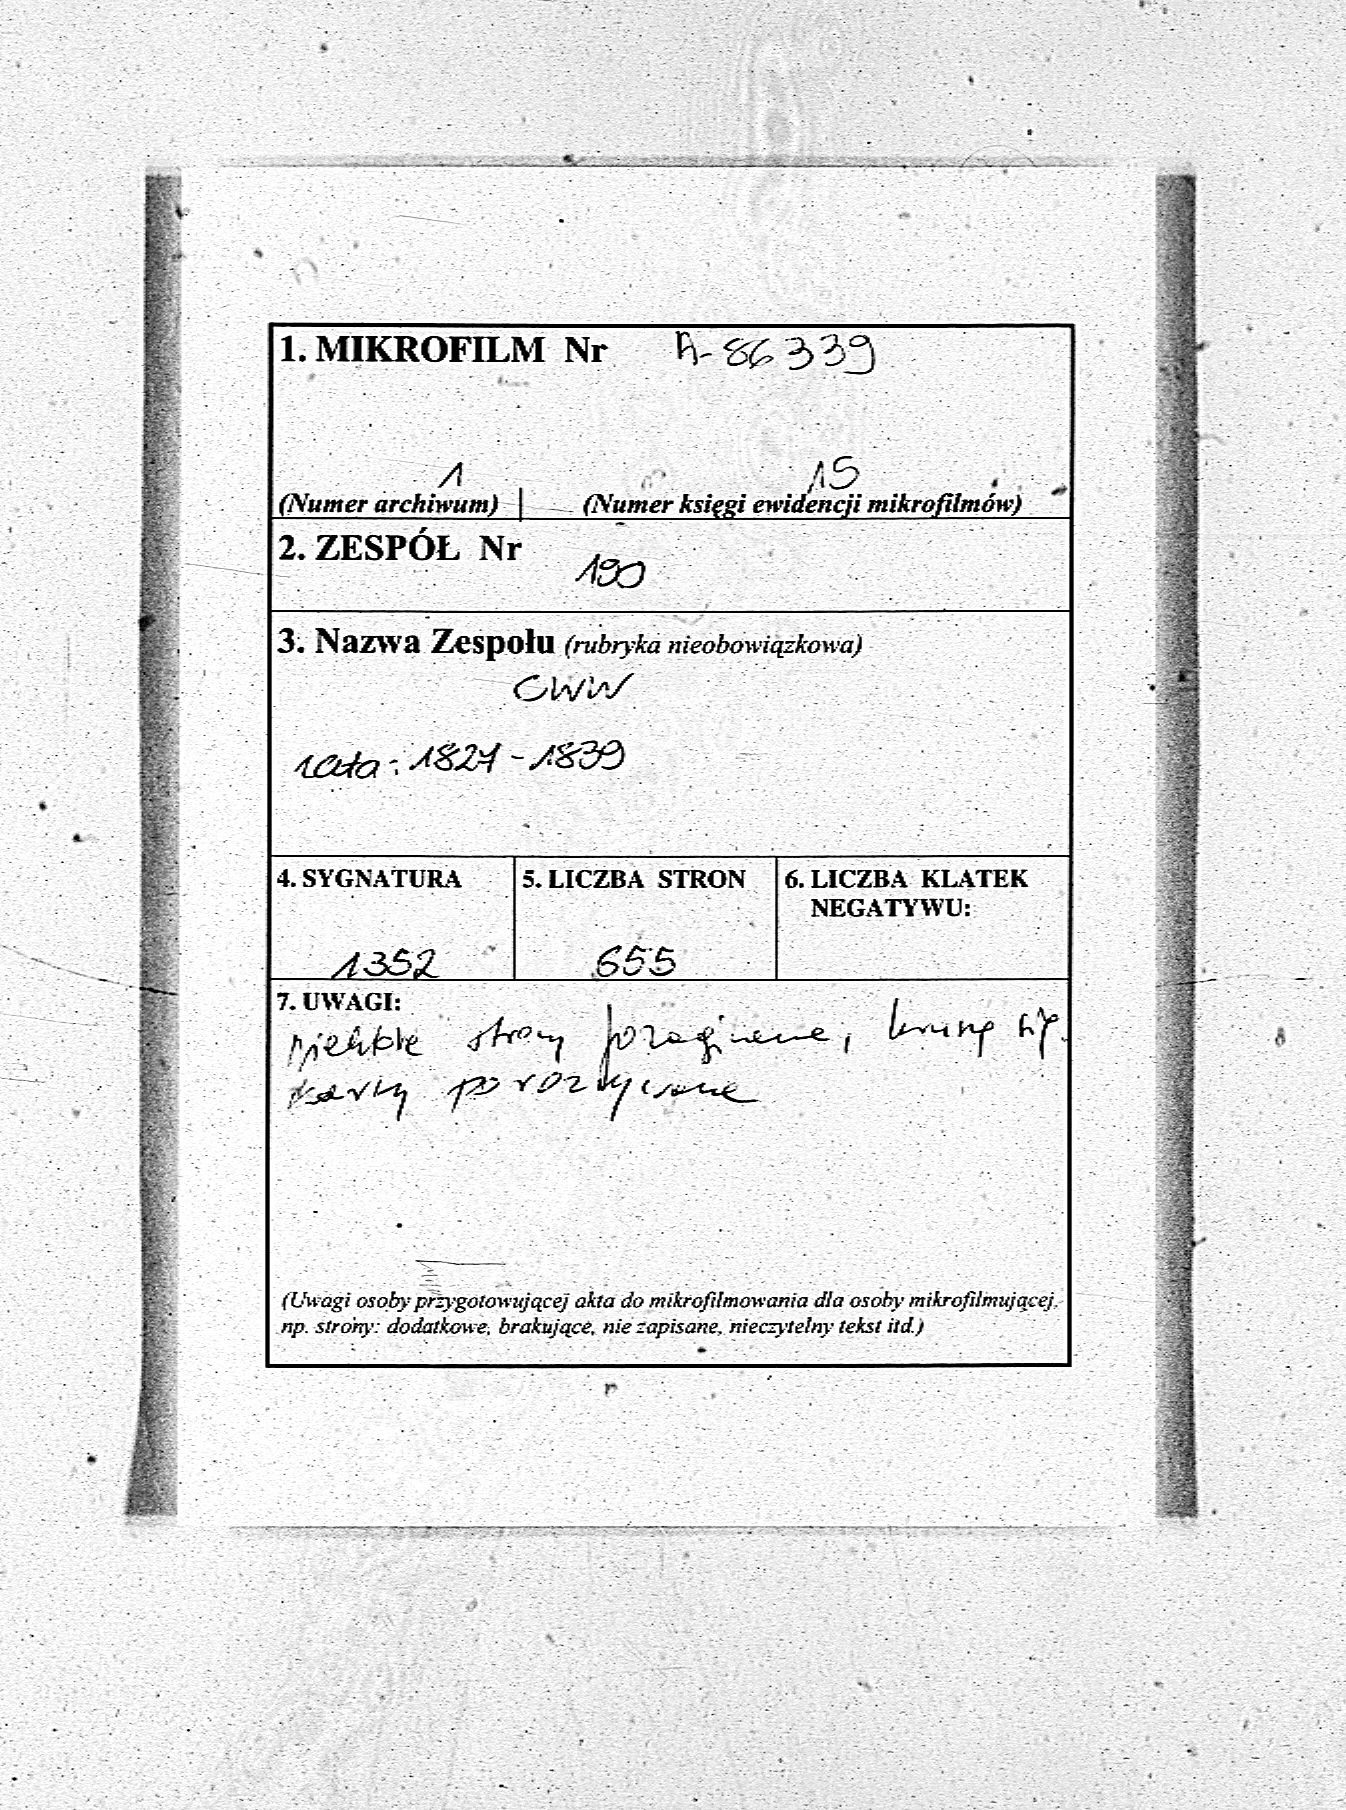 1. MIKROFILM Nr A-86339
1 15
(Numer archiwum) (Numer księgi ewidencji mikrofilmów)
2. ZESPÓŁ Nr
190
3. Nazwa Zespołu (rubryka nieobowiązkowa)
CWW
lata: 1827-1839
4. SYGNATURA 5. LICZBA STRON 6. LICZBA KLATEK
NEGATYWU:
1352 655
7. UWAGI:
niektóre strony pozaginane, kruszą się
karty
(Uwagi osoby przygotowującej akta do mikrofilmowania dla osoby mikrofilmującej,
np. strony: dodatkowe, brakujące, nie zapisane, nieczytelny tekst itd.)